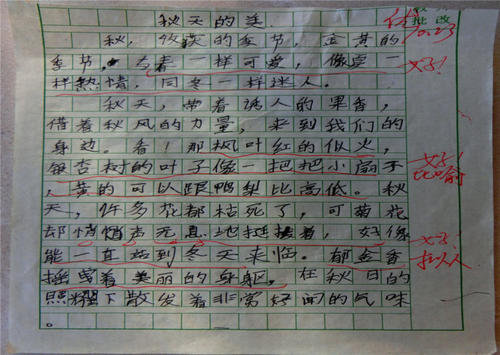 秋天的美
秋,收获的季节,金黄的
季节,与春一样可爱,像夏一
样热情,同冬一样迷人。
秋天,带着诱人的果香,
借着秋风的力量,来到我们的
身边。看!那枫叶红的似火,
银杏树的叶子像一把把小扇子
,黄的可以跟鸭梨比高低。秋
天,许多花都枯死了,可菊花
却悄悄声无息地挺接着,好像
能一直站到冬天来临。郁金香
摇曳着美丽的身躯,在秋日的
照耀下散发着非常好闻的气味
。
批改
优
10.23
好!
好!
比喻
好!
拟人